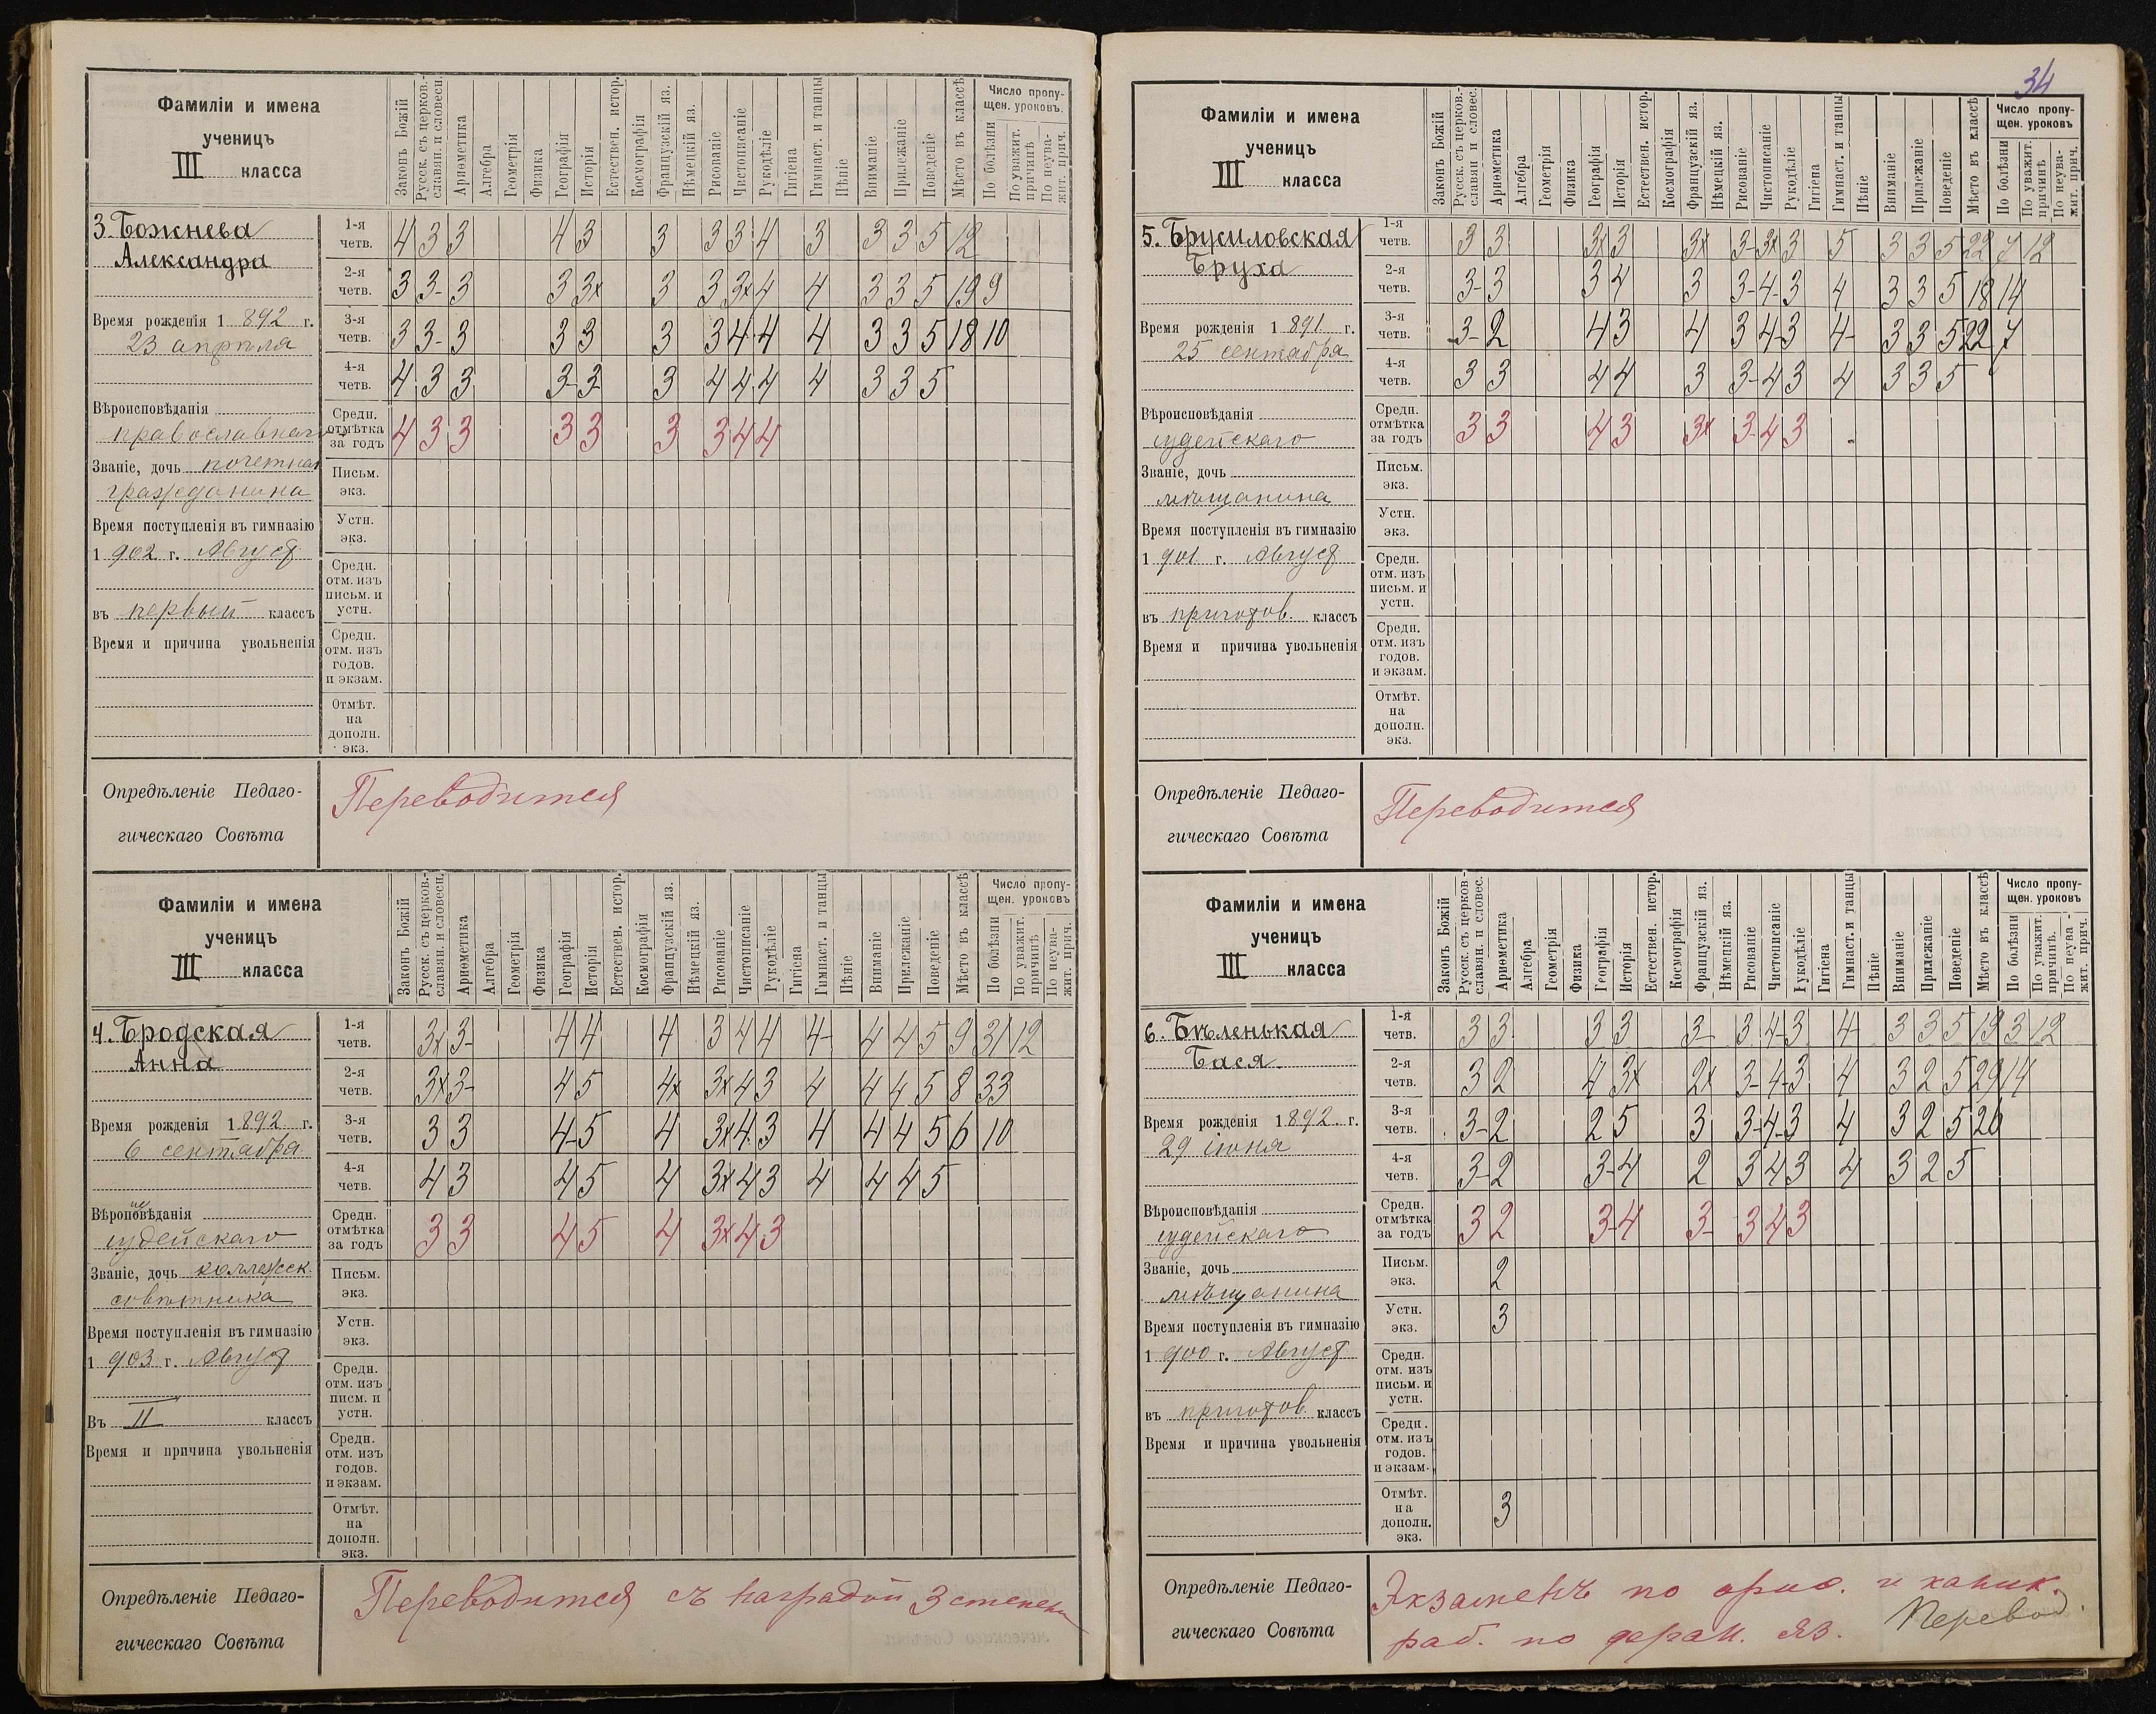 34
Фамиліи и имена
ученицъ
III класса
Законъ Божій
Русск. съ церков.-
славян. и словесн.
Ариѳметика
Алгебра
Геометрія
Физика
Географія
Исторія
Естествен. истор.
Космографія
Французскій яз.
Нѣмецкій яз.
Рисованіе
Чистописаніе
Рукодѣліе
Гигіена
Гимнаст. и танцы
Пѣніе
Вниманіе
Прилежаніе
Поведеніе
Мѣсто въ классѣ
Число пропу-
щен. уроковъ.
По болѣзни
По уважит.
причинѣ
По неува-
жит. прич.
3. Божнева
Александра
Время рожденія 1892 г.
23 апрѣля
Вѣроисповѣданія
православнаго
Званіе, дочь почетнаго
гражданина
Время поступленія въ гимназію
1902 г. Август
въ первый классъ
Время и причина увольненія
1-я четв. 4 3 3 4 3 3 3 3 4 3 3 3 5 12
2-я четв. 3 3- 3 3 3х 3 3 3х 4 4 3 3 5 19 9
3-я четв. 3 3- 3 3 3 3 3 4 4 4 3 3 5 18 10
4-я четв. 4 3 3 3- 3 3 4 4 4 4 3 3 5
Средн. отмѣтка за годъ 4 3 3 3 3 3 3 4 4
Письм. экз.
Устн. экз.
Средн. отм. изъ письм. и устн.
Средн. отм. изъ годов. и экзам.
Отмѣт. на дополн. экз.
Опредѣленіе Педаго-
гическаго Совѣта
Переводится
Фамиліи и имена
ученицъ
III класса
Законъ Божій
Русск. съ церков.-
славян. и словесн.
Ариѳметика
Алгебра
Геометрія
Физика
Географія
Исторія
Естествен. истор.
Космографія
Французскій яз.
Нѣмецкій яз.
Рисованіе
Чистописаніе
Рукодѣліе
Гигіена
Гимнаст. и танцы
Пѣніе
Вниманіе
Прилежаніе
Поведеніе
Мѣсто въ классѣ
Число пропу-
щен. уроковъ
По болѣзни
По уважит.
причинѣ
По неува-
жит. прич.
4. Бродская
Анна
Время рожденія 1892 г.
6 сентября
Вѣроповѣданія
іудейскаго
Званіе, дочь коллежск.
совѣтника
Время поступленія въ гимназію
1903 г. Август
Въ II классъ
Время и причина увольненія
1-я четв. 3х 3- 4 4 4 3 4 4 4- 4 4 5 9 21 12
2-я четв. 3х 3- 4 5 4х 3х 4 3 4 4 4 5 8 33
3-я четв. 3 3 4 5 4 3х 4 3 4 4 4 5 6 10
4-я четв. 4 3 4 5 4 3х 4 3 4 4 4 5
Средн. отмѣтка за годъ 3 3 4 5 4 3х 4 3
Письм. экз.
Устн. экз.
Средн. отм. изъ писм. и устн.
Средн. отм. изъ годов. и экзам.
Отмѣт. на дополн. экз.
Опредѣленіе Педаго-
гическаго Совѣта
Переводится съ наградой 3 степени
Фамиліи и имена
ученицъ
III класса
Законъ Божій
Русск. съ церков.-
славян и словес.
Ариѳметика
Алгебра
Геометрія
Физика
Географія
Исторія
Естествен. истор.
Космографія
Французскій яз.
Нѣмецкій яз.
Рисованіе
Чистописаніе
Рукодѣліе
Гигіена
Гимнаст. и танцы
Пѣніе
Вниманіе
Прилежаніе
Поведеніе
Мѣсто въ классѣ
Число пропу-
щен. уроковъ
По болѣзни
По уважит.
причинѣ
По неува-
жит. прич.
5. Брусиловская
Бруха
Время рожденія 1891 г.
25 сентября
Вѣроисповѣданія
іудейскаго
Званіе, дочь
мѣщанина
Время поступленія въ гимназію
1901 г. Август
въ приготов. классъ
Время и причина увольненія
1-я четв. 3 3 3х 3 3х 3- 3х 3 5 3 3 5 22 7 12
2-я четв. 3- 3 3 4 3 3- 4- 3 4 3 3 5 18 14
3-я четв. 3- 2 4 3 4 3 4 3 4- 3 3 5 22 7
4-я четв. 3 3 4 4 3 3- 4 3 4 3 3 5
Средн. отмѣтка за годъ 3 3 4 3 3х 3- 4 3
Письм. экз.
Устн. экз.
Средн. отм. изъ письм. и устн.
Средн. отм. изъ годов. и экзам.
Отмѣт. на дополн. экз.
Опредѣленіе Педаго-
гическаго Совѣта
Переводится
Фамиліи и имена
ученицъ
III класса
Законъ Божій
Русск. съ церков-
славян. и словес.
Ариѳметика
Алгебра
Геометрія
Физика
Географія
Исторія
Естествен. истор.
Космографія
Французскій яз.
Нѣмецкій яз.
Рисованіе
Чистописаніе
Рукодѣліе
Гигіена
Гимнаст. и танцы
Пѣніе
Вниманіе
Прилежаніе
Поведеніе
Мѣсто въ классѣ
Число пропу-
щен. уроковъ
По болѣзни
По уважит.
причинѣ.
По неува-
жит. прич.
6. Бѣленькая
Бася.
Время рожденія 1892. г.
29 іюня
Вѣроисповѣданія
іудейскаго
Званіе, дочь
мѣщанина
Время поступленія въ гимназію
1900 г. Август
въ приготов. классъ
Время и причина увольненія
1-я четв. 3 3 3 3 3- 3 4- 3 4- 3 3 5 19 3 12
2-я четв. 3 2 4 3х 2х 3- 4- 3 4 3 2 5 29 14
3-я четв. 3- 2 2 5 3 3- 4- 3 4 3 2 5 26
4-я четв. 3- 2 3- 4 2 3 4 3 4 3 2 5
Средн. отмѣтка за годъ 3 2 3- 4 3- 3 4 3
Письм. экз. 2
Устн. экз. 3
Средн. отм. изъ письм. и устн.
Средн. отм. изъ годов. и экзам.
Отмѣт. на дополн. экз. 3
Опредѣленіе Педаго-
гическаго Совѣта
Экзаменъ по ариѳ. и каник.
раб. по фран. яз. Перевод.